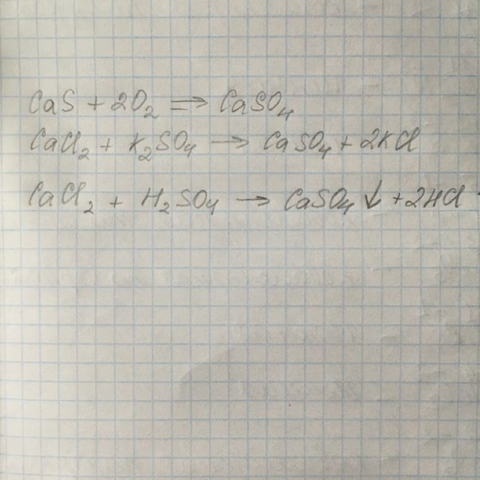 CaS + 2O₂ ⟹ CaSO₄
CaCl₂ + K₂SO₄ → CaSO₄ + 2KCl
CaCl₂ + H₂SO₄ → CaSO₄ ↓ + 2HCl